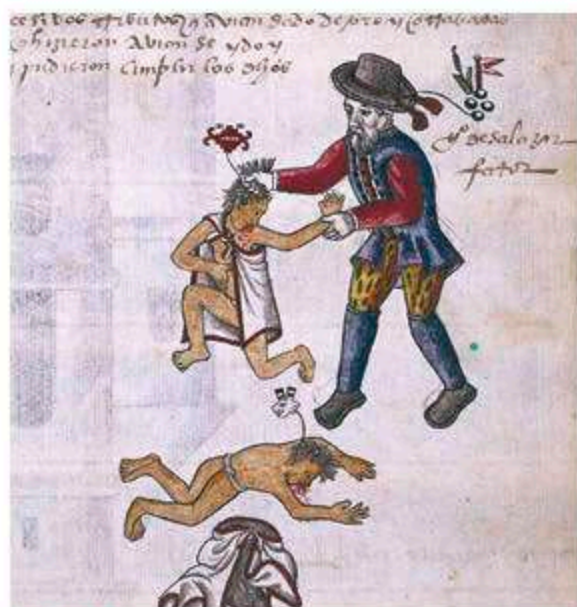 tributos y avian dado de oro y
hizieron avian se ydo y
pudieron cumplir los dhos
g° de salazar
fator